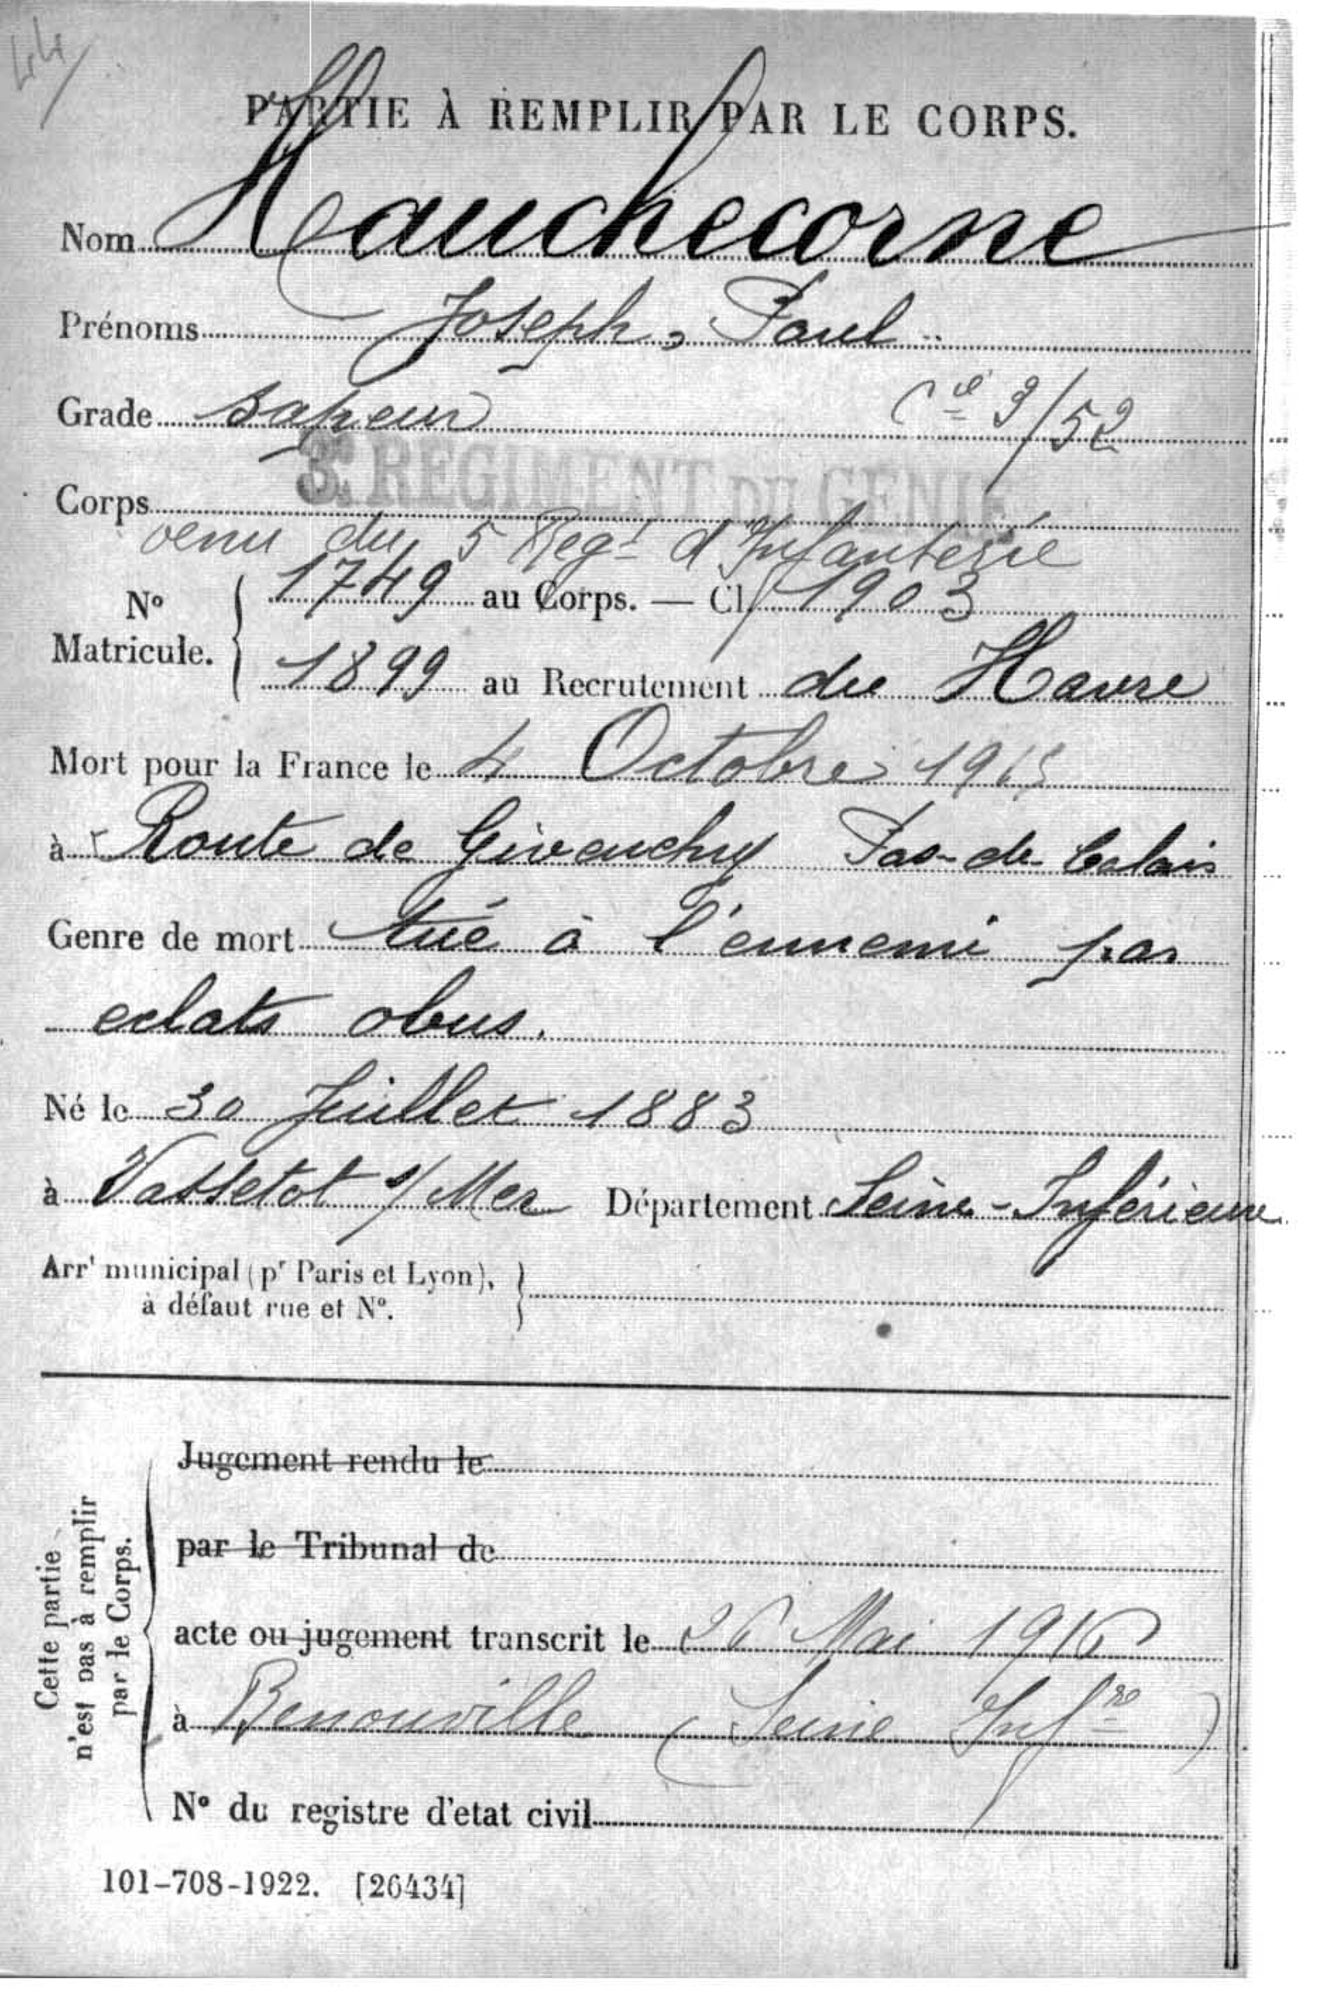 44
PARTIE À REMPLIR PAR LE CORPS.
Nom Hauchecorne
Prénoms Joseph, Paul
Grade sapeur Cie 3/52
3e REGIMENT DU GENIE
Corps
venu du 5 Regt d'Infanterie
No Matricule. { 1749 au Corps. — Cl. 1903
1899 au Recrutement du Havre
Mort pour la France le 4 Octobre 1915
à Route de Givenchy Pas-de-Calais
Genre de mort tué à l'ennemi par
eclats obus.
Né le 30 Juillet 1883
à Vattetot s/ Mer Département Seine-Inférieure
Arrt municipal (pr Paris et Lyon),
à défaut rue et No. }
Cette partie
n'est pas à remplir
par le Corps.
Jugement rendu le
par le Tribunal de
acte ou jugement transcrit le 26 Mai 1916
à Benouville (Seine Infre)
No du registre d'etat civil
101-708-1922. [26434]